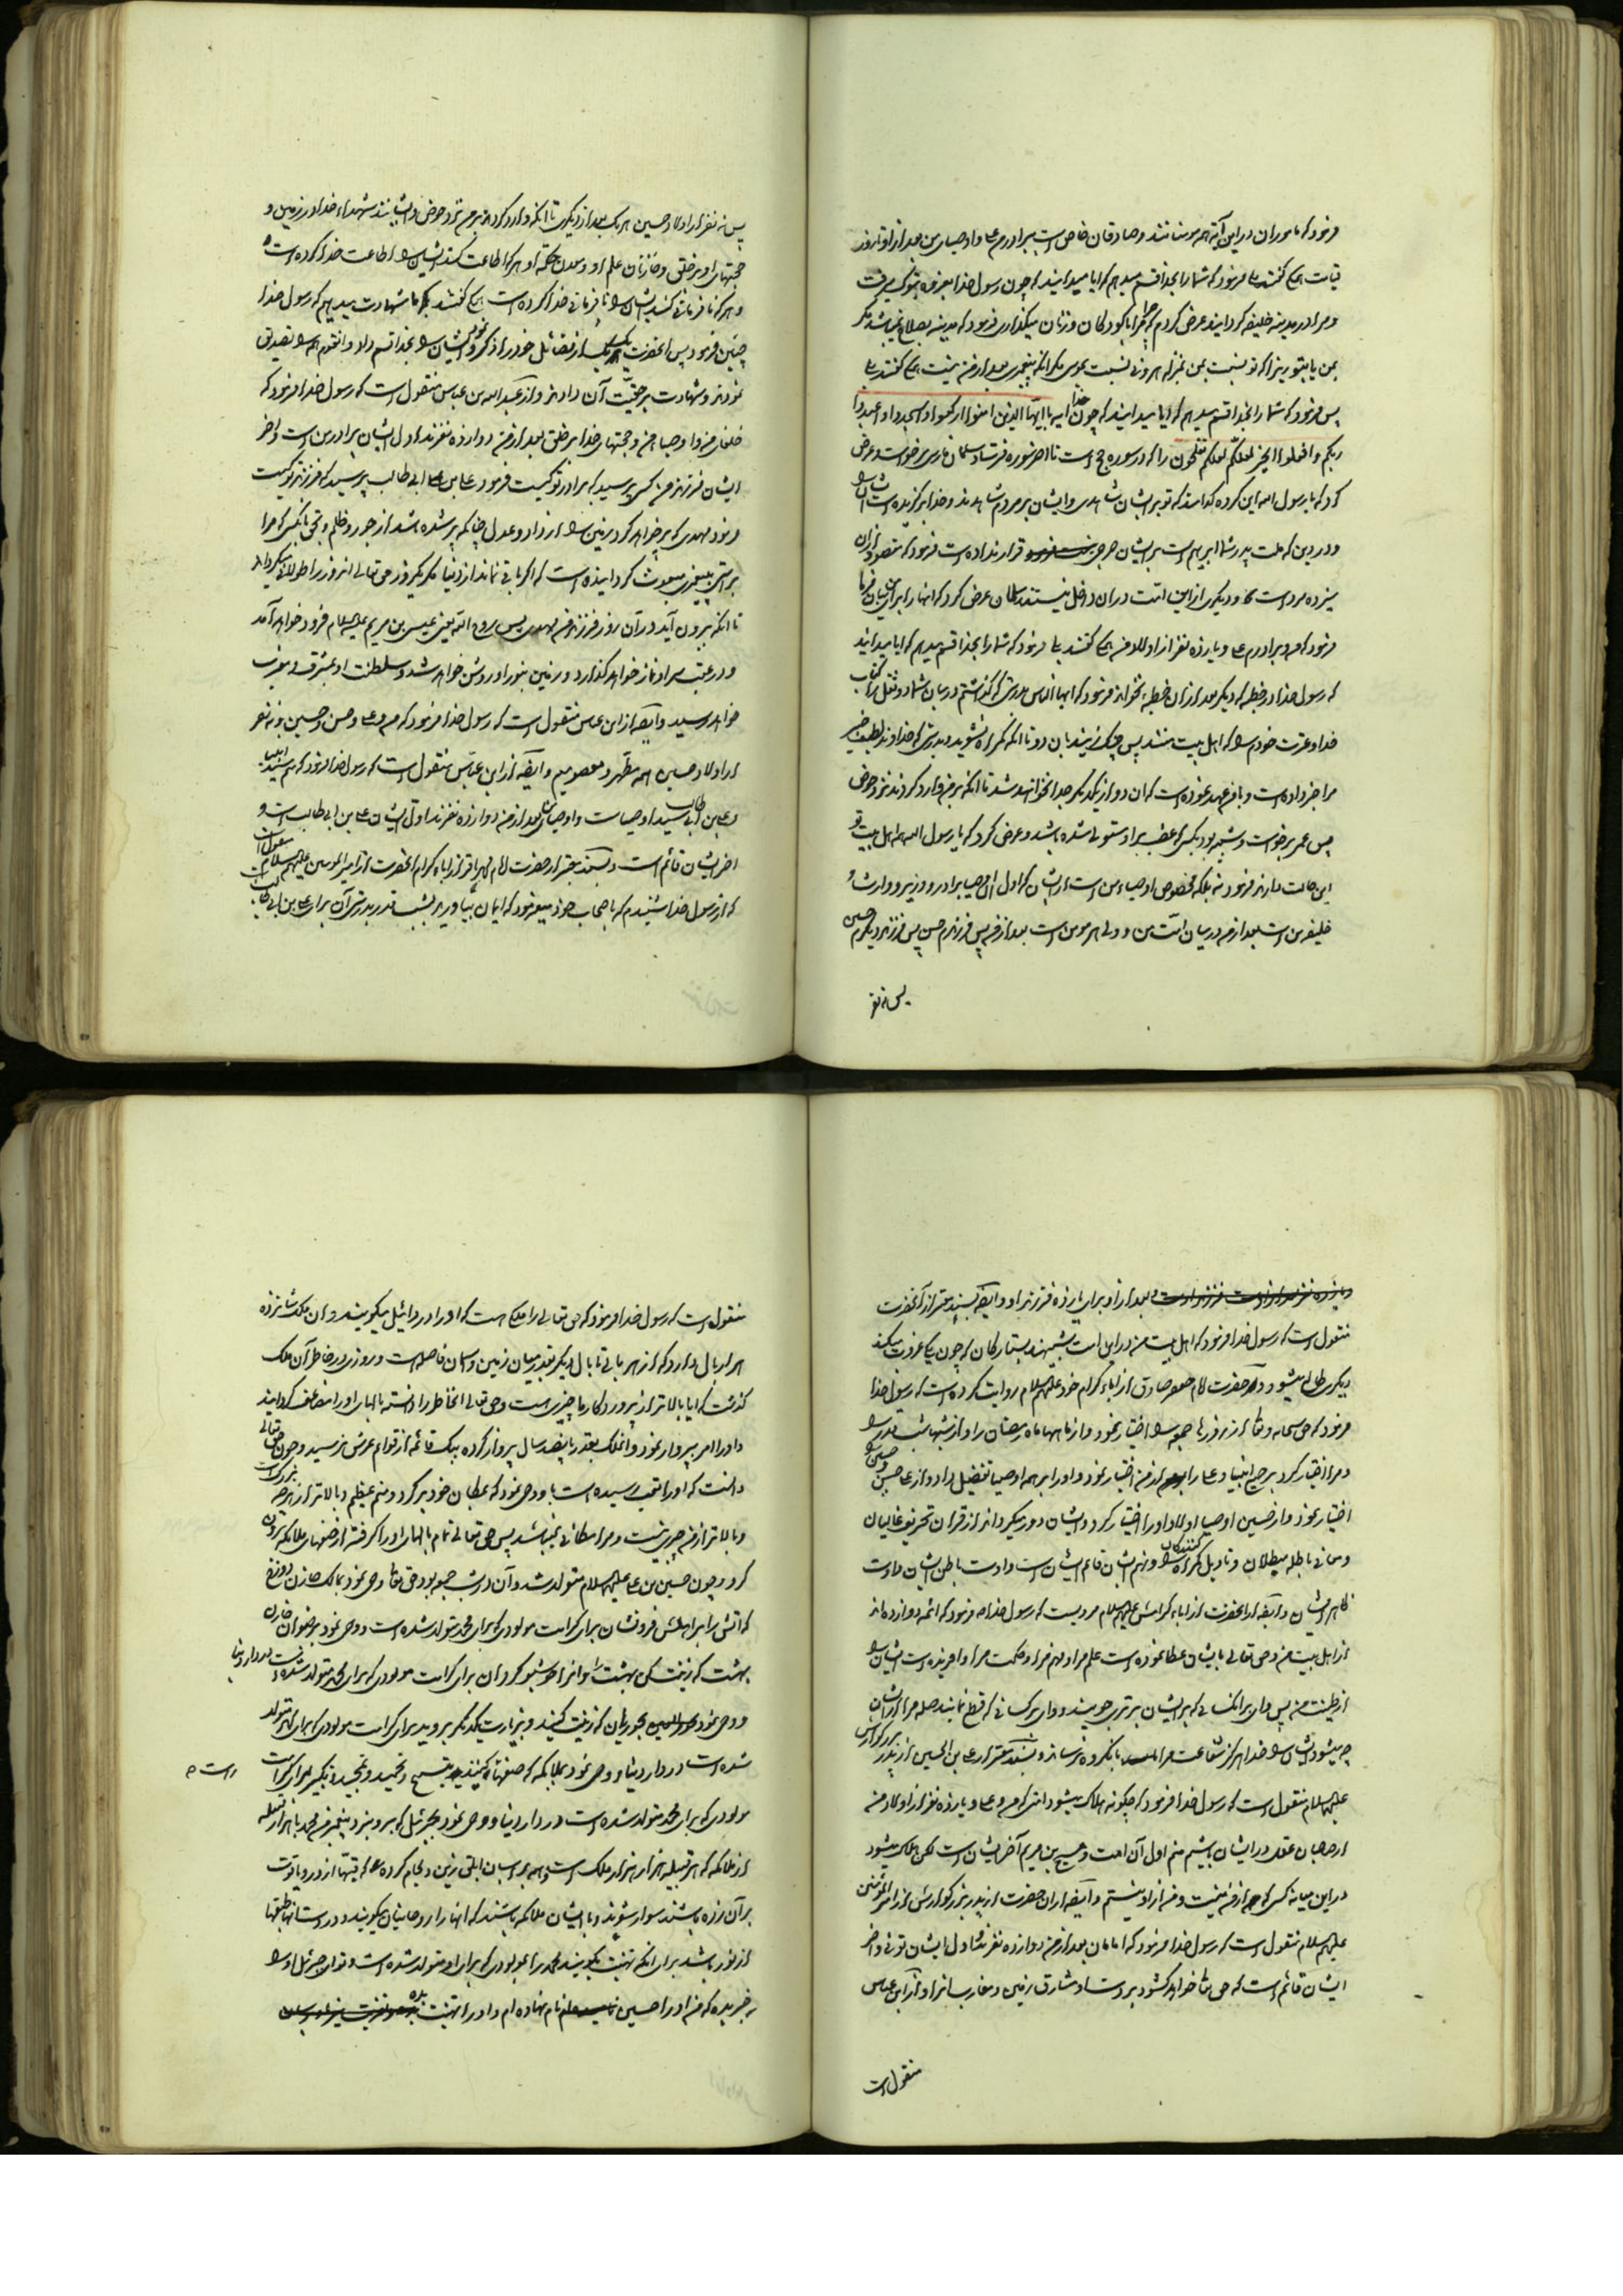 فرمود که ماموران در این آیه همه مومنانند و صادقان خاص است ببرادرم علی و اوصیاء من بعد از او تا روز
قیامت همه گفتند بلی فرمود که شما را بخدا قسم میدهم که ایا میدانید که چون رسول خدا بغزوه تبوک میرفت
و مرا در مدینه خلیفه گردانید عرض کردم که چرا مرا با کودکان و زنان میگذاری فرمود که مدینه بصلاح نمی باشد مگر
بمن یا بتو زیرا که تو نسبت بمن بمنزله هرونی نسبت بموسی مگر انکه پیغمبری بعد از من نیست همه گفتند بلی
پس فرمود که شما را بخدا قسم میدهم که ایا میدانید که چون خدا ایه یا ایها الذین امنوا ارکعوا و اسجدوا و اعبدوا
ربکم و افعلوا الخیر لعلکم تفلحون را که در سوره حج است تا اخر سوره فرستاد سلمان فارسی برخواست و عرض
کرد که یا رسول الله این گروه کدامند که تو بر ایشان شاهدی و ایشان بر مردم شاهدند و خدا برگزیده است ایشان را
و در دین که ملت پدر شما ابرهیم است بر ایشان حرجی قرار نداده است فرمود که مقصود ازان
سیزده مرد است و دیگری از این امت دران داخل نیستند سلمان عرض کرد که انها را برای ما بیان فرما
فرمود که من و برادرم علی و یازده نفر از اولاد من همه گفتند بلی فرمود که شما را بخدا قسم میدهم که ایا میدانید
که رسول خدا در خطبه که دیگر بعد ازان خطبه نخواند فرمود که ایها الناس بدرستی که گذاشتم در میان شما دو ثقل را کتاب
خدا و عترت خودم را که اهل بیت منند پس چنگ زنید بان دو تا انکه گمراه نشوید بدرستی که خداوند لطیف خبیر
مرا خبر داده است و با من عهد نموده است که ان دو از یکدیگر جدا نخواهند شد تا انکه بر من وارد گردند نزد حوض
پس عمر برخواست و شبیه بود بکسی که غضب بر او مستولی شده باشد و عرض کرد که یا رسول الله همه اهل بیت تو
این حالت دارند فرمود نه بلکه مخصوص اوصیاء من است از ایشان که اول ان اوصیا برادر و وزیر و وارث و
خلیفه من است بعد از من در میان امت من و ولی هر مومن است بعد از من پس فرزندم حسن پس فرزند دیگرم حسین
پس نه نفر
پس نه نفر از اولاد حسین هر یک بعد از دیگری تا انکه وارد گردند بر من نزد حوض و ایشانند شهداء خدا در زمین و
حجتهای او بر خلق و خازنان علم او و معدن حکمت او هر که اطاعت کند ایشان را اطاعت خدا کرده است
و هر که نافرمانی کند ایشان را نافرمانی خدا کرده است همه گفتند که ما شهادت میدهیم که رسول خدا
چنین فرمود پس انحضرت یک یک از فضائل خود را ذکر نمود و ایشان را بخدا قسم داد و انقوم همه را تصدیق
نمودند و شهادت بر حقیت آن دادند و از عبدالله بن عباس منقول است که رسول خدا فرمود که
خلفاء من و اوصیاء من و حجتهای خدا بر خلق بعد از من دوازده نفرند اول ایشان برادر من است و اخر
ایشان فرزند من کسی پرسید که برادر تو کیست فرمود علی بن ابی طالب پرسید که فرزند تو کیست
فرمود مهدی که پر خواهد کرد زمین را از داد و عدل چنانکه پر شده باشد از جور و ظلم و بحق انکسی که مرا
براستی بپیغمبری مبعوث گردانیده است که اگر باقی نماند از دنیا مگر یکروز حق تعالی انروز را طولانی میگرداند
تا انکه بیرون آید در آن روز فرزند من مهدی پس روح الله یعنی عیسی بن مریم علیه السلام فرود خواهد آمد
و در عقب سر او نماز خواهد گذارد و زمین بنور او روشن خواهد شد و سلطنت او بمشرق و مغرب
خواهد رسید و ایضا از ابن عباس منقول است که رسول خدا فرمود که من و علی و حسن و حسین و نه نفر
از اولاد حسین همه مطهر و معصومیم و ایضا از ابن عباس منقول است که رسول خدا فرمود که منم سید انبیا
و علی بن ابی طالب سید اوصیاست و اوصیای بعد از من دوازده نفرند اول ایشان علی بن ابی طالب است و
اخر ایشان قائم است و بسند معتبر از حضرت امام محمد باقر از اباء کرام انحضرت از امیر المومنین علیهم السلام منقول است
که از رسول خدا شنیدم که باصحاب خود میفرمود که ایمان بیاورید بشب قدر بدرستی که آن برای علی بن ابی طالب است
بعد از او برای یازده فرزند او و ایضا بسند معتبر از آنحضرت
منقول است که رسول خدا فرمود که اهل بیت من در این امت شبیهند بستارگان که چون یکی غروب میکند
دیگری طالع میشود و حضرت امام جعفر صادق از اباء کرام خود علیهم السلام روایت کرده است که رسول خدا
فرمود که حق سبحانه و تعالی از روزها جمعه را اختیار نمود و از ماهها ماه رمضان را و از شبها شب قدر را
و مرا اختیار کرد بر جمیع انبیا و علی را از من اختیار نمود و او را بر همه اوصیا تفضیل داد و از علی حسن و حسین را
اختیار نمود و از حسین اوصیا اولاد او را اختیار کرد و ایشان دور میگردانند از قران تحریف غالیان
و معانی باطله مبطلان و تاویل گمراه کنندگان را و نهم ایشان قائم ایشان است و اوست باطن ایشان و اوست
ظاهر ایشان و ایضا از انحضرت از اباء گرامش علیهم السلام مرویست که رسول خدا فرمود که ائمه دوازده اند
از اهل بیت من و حق تعالی بایشان عطا نموده است علم مرا و فهم مرا و حکمت مرا و افریده است ایشان را
از طینت من پس وای بر انکسانی که بر ایشان برتری جویند و وای بر کسانی که قطع نمایند صله مرا از ایشان
چه میشود ایشان را خدا هرگز شفاعت مرا بانگروه نرساند و بسند معتبر از علی بن الحسین از پدر بزرگوارش
علیهم السلام منقول است که رسول خدا فرمود که چگونه هلاک میشود امتی که من و علی و یازده نفر از اولاد من
از صاحبان عقل در ایشان باشیم منم اول آن امت و مسیح بن مریم آخر ایشان است لکن هلاک میشود
در این میانه کسی که از من نیست و من از او نیستم و ایضا از ان حضرت از پدر بزرگوارش از امیر المومنین
علیهم السلام منقول است که رسول خدا فرمود که امامان بعد از من دوازده نفرند اول ایشان توئی و اخر
ایشان قائم است که حق تعالی خواهد گشود بر دست او مشارق زمین و مغارب انرا و از ابن عباس
منقول است
منقول است که رسول خدا فرمود که حق تعالی را ملکی هست که او را دردائیل میگویند و ان ملک شانزده
هزار بال دارد که از هر بالی تا بال دیگر بقدر میان زمین و اسمان فاصله است و روزی در خاطر آن ملک
گذشت که ایا بالاتر از پروردگار ما چیزی هست و حق تعالی انخاطر را دانسته بالهای او را مضاعف گردانید
و او را امر بپرواز نمود و انملک بقدر پانصد سال پرواز کرده بیک قائمه از قوائم عرش نرسید و چون حق تعالی
دانست که او را تعب رسیده است باو وحی نمود که بمکان خود برگرد و منم عظیم و بالاتر از هر بزرگ
و بالاتر از من چیزی نیست و مرا مکانی نمیباشد پس حق تعالی تمام بالهای او را گرفته از صفهای ملائکه بیرون
کرد و چون حسین بن علی علیهم السلام متولد شد و آن در شب جمعه بود حق تعالی وحی نمود بمالک خازن دوزخ
که اتش را بر اهلش فرونشان برای کرامت مولودی که برای محمد متولد شده است و وحی نمود برضوان خازن
بهشت که زینت کن بهشت را و انرا خوشبو گردان برای کرامت مولودی که برای محمد متولد شده است در دار دنیا
و وحی نمود بحوریان که زینت کنید و بزیارت یکدیگر بروید برای کرامت مولودی که برای محمد متولد
شده است در دار دنیا و وحی نمود بملائکه که صفها کشیده بتسبیح و تحمید و تمجید و تکبیر برای کرامت
مولودی که برای محمد متولد شده است در دار دنیا و وحی نمود بجبرئیل که برو بنزد پیغمبر من محمد با هزار قبیله
از ملائکه که هر قبیله هزار هزار ملک است و همه بر اسبان ابلق زین و لجام کرده که قبتها از در و یاقوت
بر آن زده باشند سوار شوند و با ایشان ملائکه باشند که انها را روحانیان میگویند و در دست انها طبقها
از نور باشد برای انکه تهنیت بگویند محمد را بمولودی که برای او متولد شده است و تو ای جبرئیل او را
خبر بده که من او را حسین نام نهاده ام و او را تهنیت بده